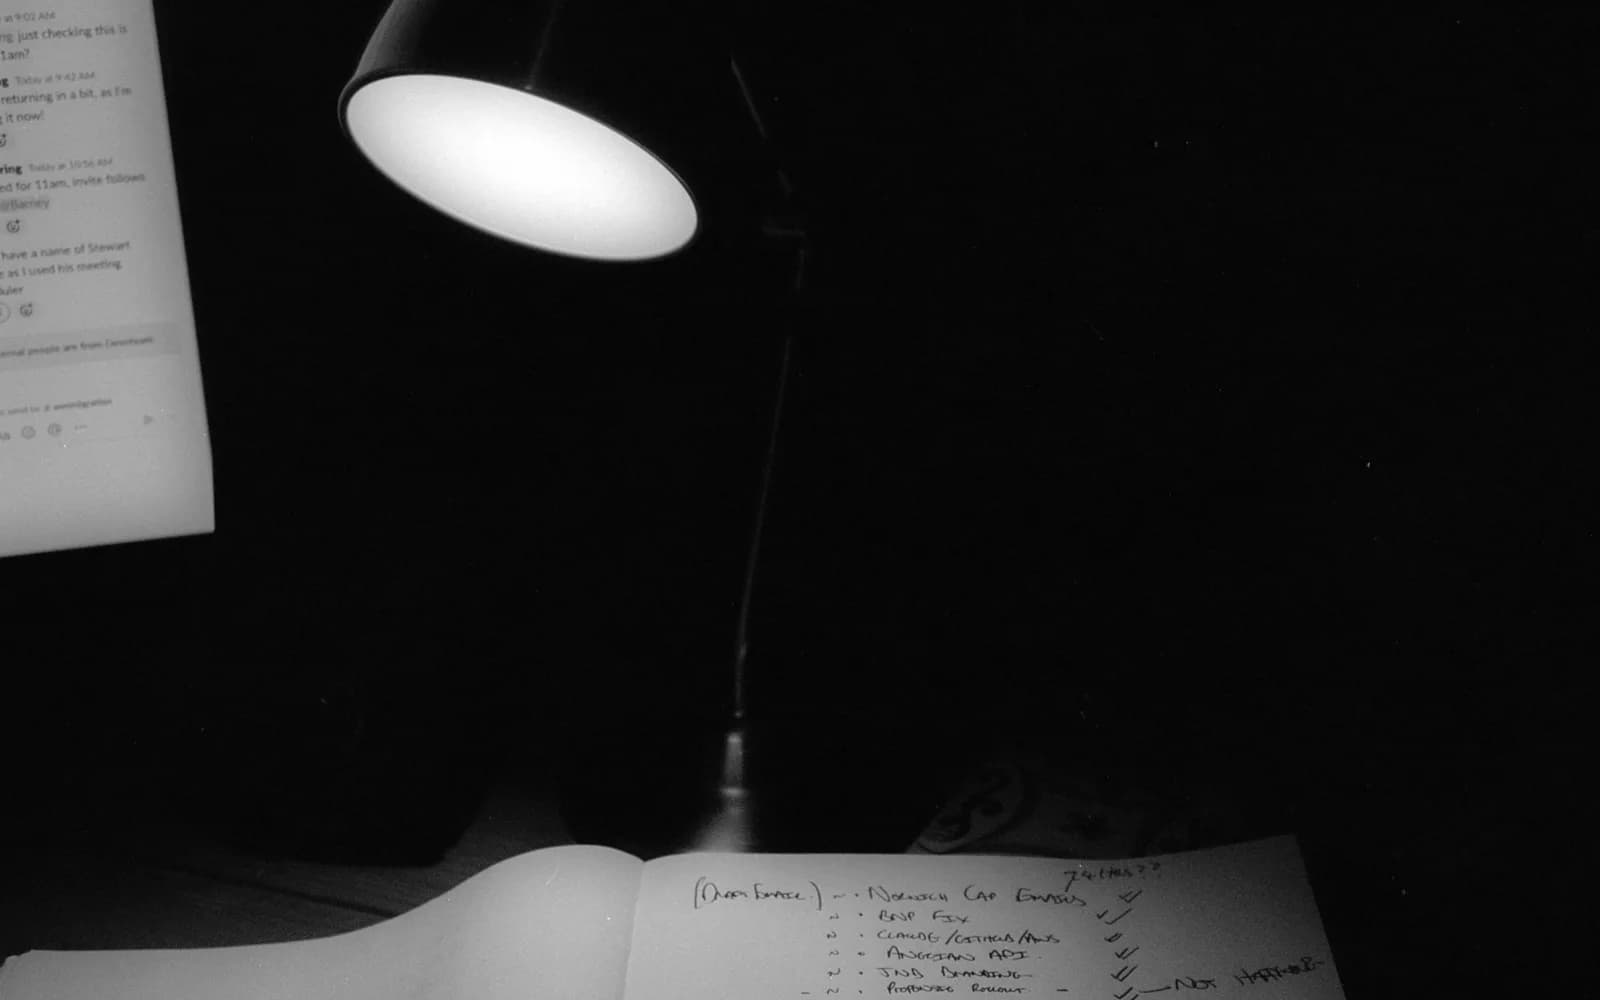 at 9:02 AM
ng just checking this is
1am?
g Today at 9:42 AM
returning in a bit, as I'm
g it now!
ring Today at 10:56 AM
ed for 11am, invite follows
@Barney
have a name of Stewart
e as I used his meeting
duler
ernal people are from
(Draft Email) ~ · Norwich Cap Emails
~ · BNP Fix
~ · Claude/GitHub/AWS
~ · Anglian API.
~ · JNB Branding
- ~ · Rollout - Not